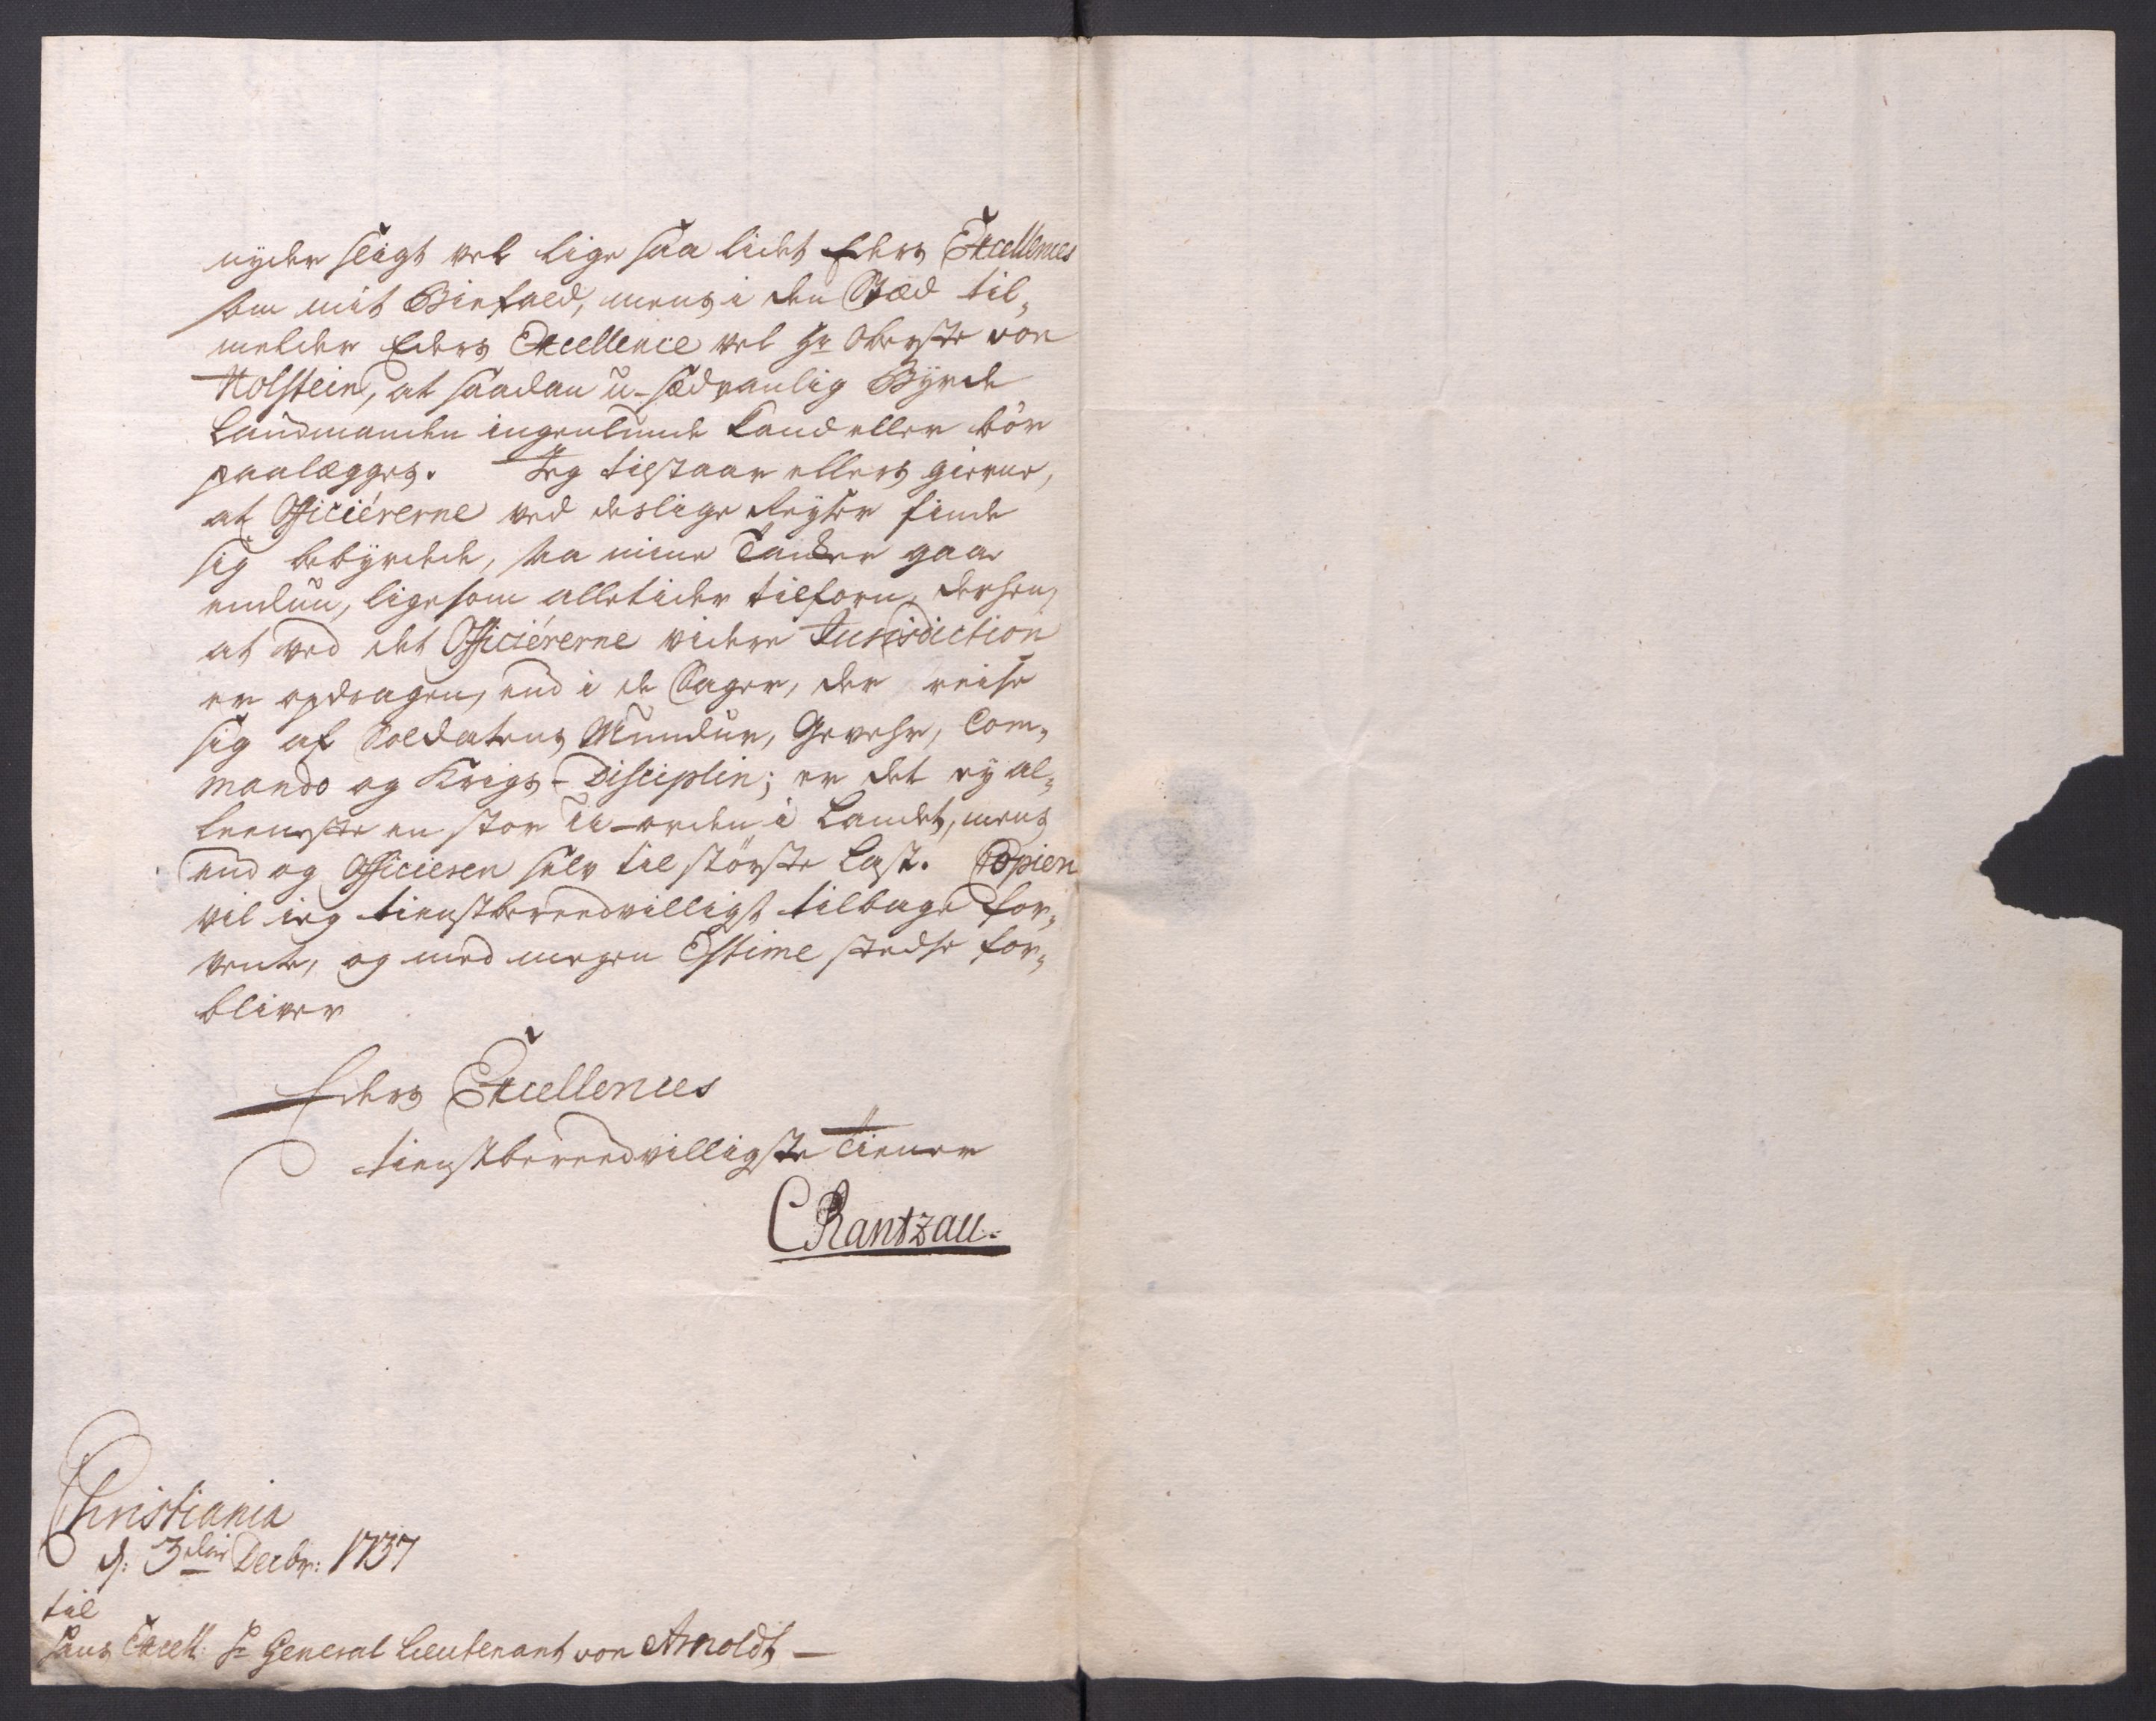 nyder sligt vel lige saa lidet Eders Excellences
som mit Biefald, mens i den Stæd til-
melder Eders Excellence vel Hr Oberste von
Holstein, at saadan u-sædvanlig Byrde
Landmanden ingenlunde kand eller bör
paalægges. Jeg tilstaar ellers gierne,
at Officiérerne ved deslige Reyser finde
sig bebyrdede, saa mine Tanker gaar
endnu, ligesom alletider tilforn, derhen,
at ved det Officiérerne videre Jurisdiction
er opdragen, end i de Sager, der reise
sig af Soldatens Mundur, Gevehr, Com-
mando og Krigs-Disciplin; er det ey al-
leeneste en stor U-orden i Landet, mens
end og Officieren selv til störste Last. Copien
vil ieg tienstbereedvilligst tilbage for-
vente, og med megen Estime stedse for-
bliver
Eders Excellences
tienstbereedvilligste Tiener
CRantzau.
Christiania
d: 3den Decbr: 1737
til
Hans Excell: Hr General Lieutenant von Arnoldt